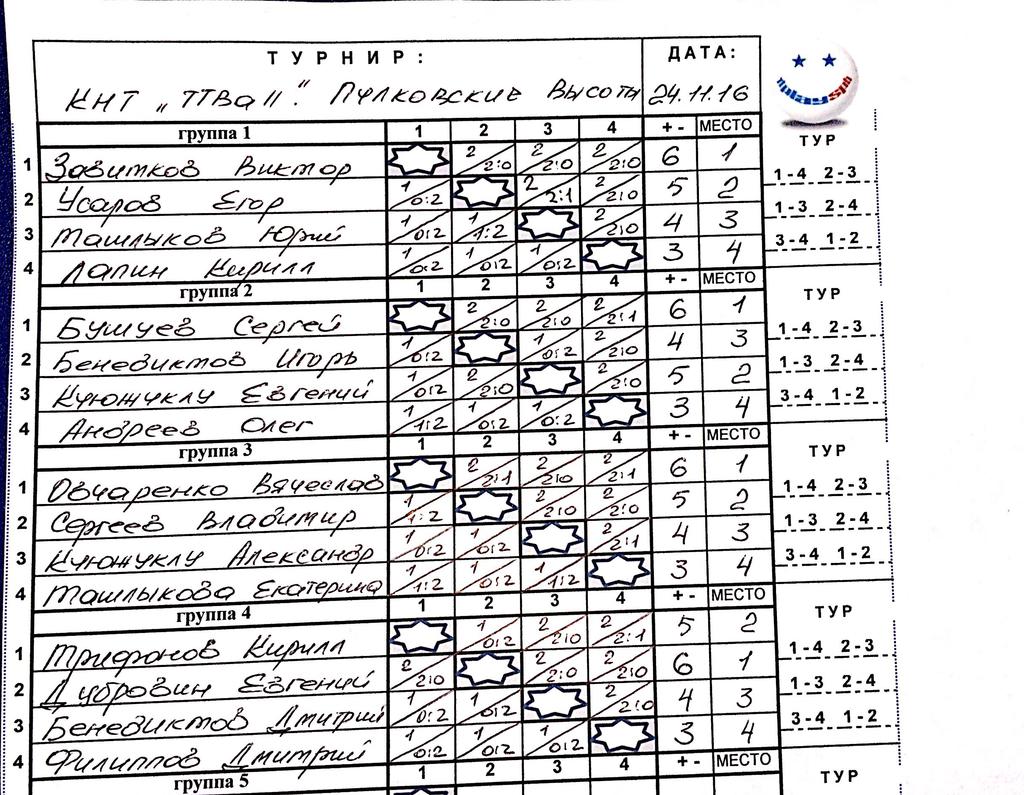 ТУРНИР: ДАТА:
КНТ „ТТВа II". Пулковские Высоты 24.11.16
nplayspb
группа 1 1 2 3 4 + - МЕСТО ТУР
1 Завитков Виктор 2 2:0 2 2:0 2 2:0 6 1 1-4 2-3
2 Усаров Егор 1 0:2 2 2:1 2 2:0 5 2 1-3 2-4
3 Ташлыков Юрий 1 0:2 1 1:2 2 2:0 4 3 3-4 1-2
4 Лапин Кирилл 1 0:2 1 0:2 1 0:2 3 4
группа 2 1 2 3 4 + - МЕСТО ТУР
1 Бушуев Сергей 2 2:0 2 2:0 2 2:1 6 1 1-4 2-3
2 Бенедиктов Игорь 1 0:2 1 0:2 2 2:0 4 3 1-3 2-4
3 Куюжуклу Евгений 1 0:2 2 2:0 2 2:0 5 2 3-4 1-2
4 Андреев Олег 1 1:2 1 0:2 1 0:2 3 4
группа 3 1 2 3 4 + - МЕСТО ТУР
1 Овчаренко Вячеслав 2 2:1 2 2:0 2 2:1 6 1 1-4 2-3
2 Сергеев Владимир 1 1:2 2 2:0 2 2:0 5 2 1-3 2-4
3 Куюжуклу Александр 1 0:2 1 0:2 2 2:1 4 3 3-4 1-2
4 Ташлыкова Екатерина 1 1:2 1 0:2 1 1:2 3 4
группа 4 1 2 3 4 + - МЕСТО ТУР
1 Трифонов Кирилл 1 0:2 2 2:0 2 2:1 5 2 1-4 2-3
2 Дубровин Евгений 2 2:0 2 2:0 2 2:0 6 1 1-3 2-4
3 Бенедиктов Дмитрий 1 0:2 1 0:2 2 2:0 4 3 3-4 1-2
4 Филиппов Дмитрий 1 0:2 1 0:2 1 0:2 3 4
группа 5 1 2 3 4 + - МЕСТО ТУР